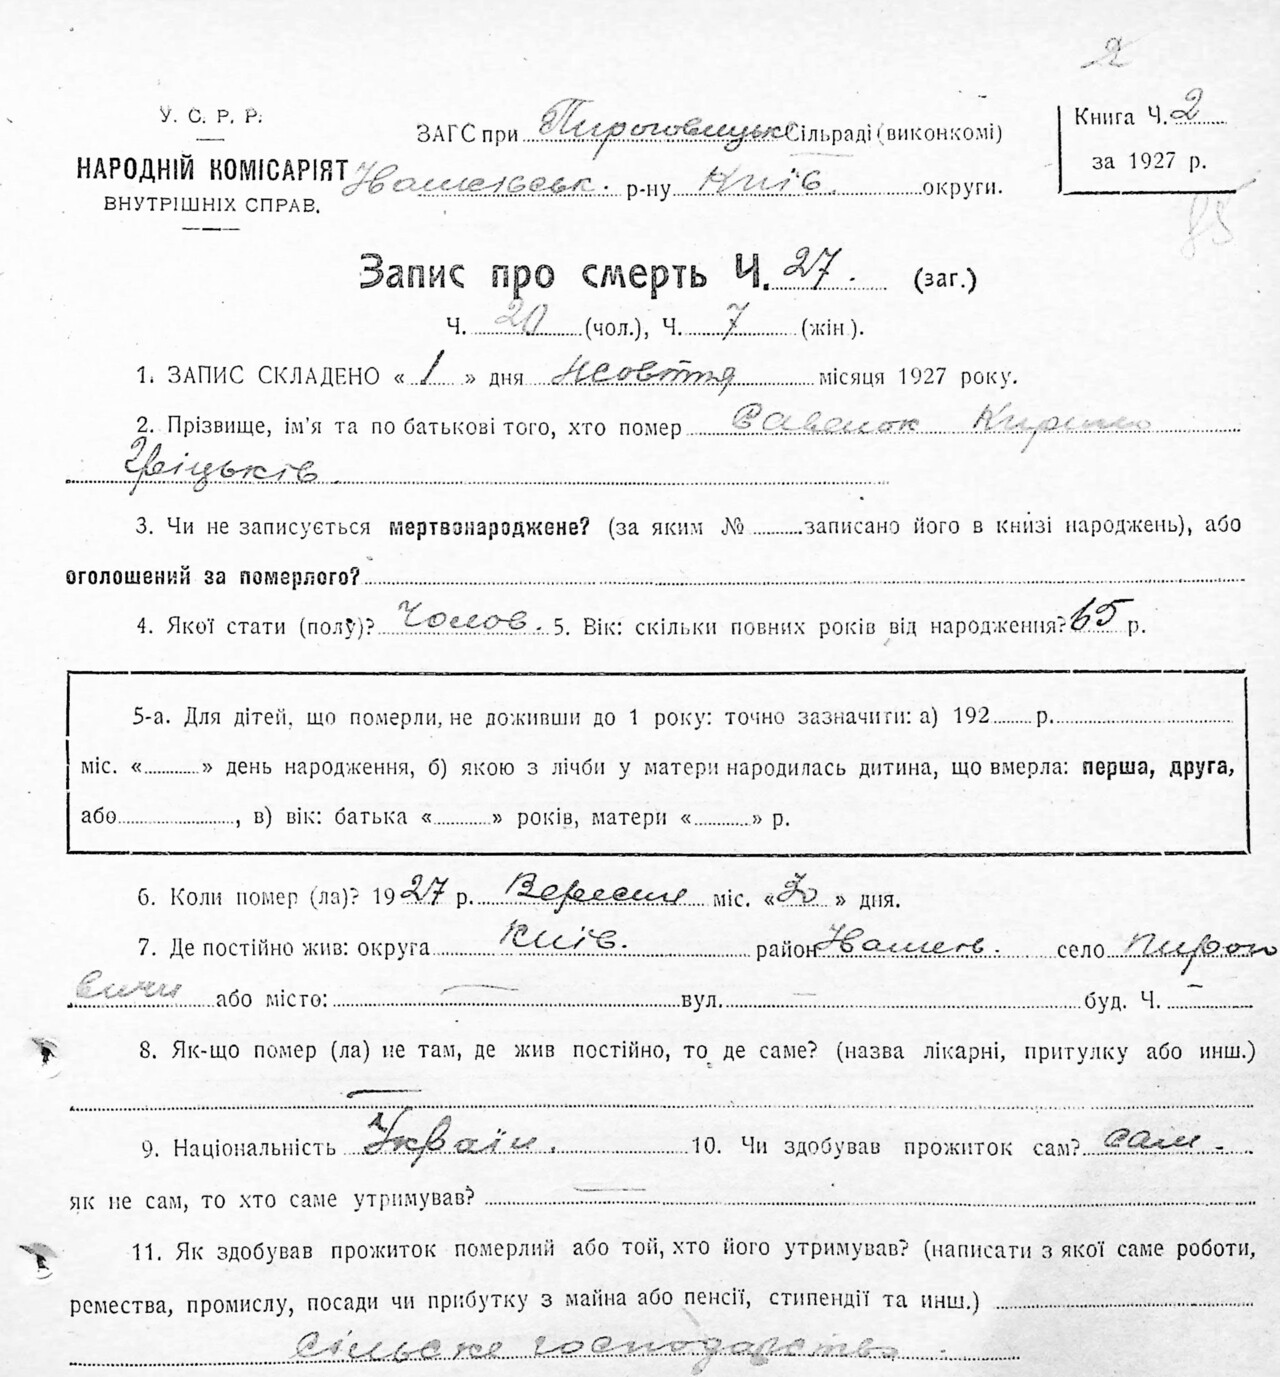 2
У. С. Р. Р.
НАРОДНІЙ КОМІСАРІЯТ
ВНУТРІШНІХ СПРАВ.
ЗАГС при Пироговицьк Сільраді (виконкомі)
р-ну Київ. округи.
Книга Ч. 2
за 1927 р.
85
Запис про смерть Ч. 27. (заг.)
Ч. 20 (чол.), Ч. 7 (жін.).
1. ЗАПИС СКЛАДЕНО « 1 » дня Жовтня місяця 1927 року.
2. Прізвище, ім'я та по батькові того, хто помер Савенок Кирило
Гріцьків
3. Чи не записується мертвонароджене? (за яким № записано його в книзі народжень), або
оголошений за померлого?
4. Якої стати (полу)? Чолов. 5. Вік: скільки повних років від народження? 65 р.
5-а. Для дітей, що померли, не доживши до 1 року: точно зазначити: а) 192 р.
міс. « » день народження, б) якою з лічби у матери народилась дитина, що вмерла: перша, друга,
або , в) вік: батька « » років, матери « » р.
6. Коли помер (ла)? 1927 р. Вересня міс. «30» дня.
7. Де постійно жив: округа Київ. район село Пирого
вичи або місто: — вул. — буд. Ч. —
8. Як-що помер (ла) не там, де жив постійно, то де саме? (назва лікарні, притулку або инш.)
—
9. Національність Україн. 10. Чи здобував прожиток сам? сам.
як не сам, то хто саме утримував? —
11. Як здобував прожиток померлий або той, хто його утримував? (написати з якої саме роботи,
ремества, промислу, посади чи прибутку з майна або пенсії, стипендії та инш.)
сільске господарство.